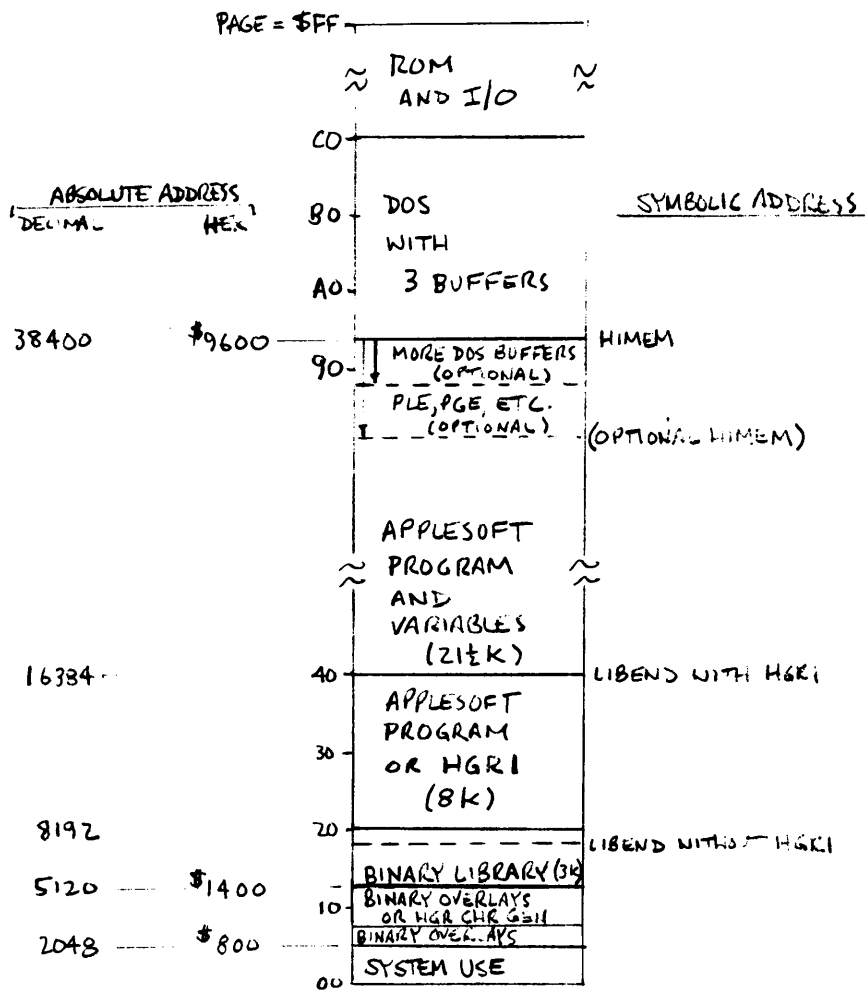 PAGE = $FF
ROM
AND I/O
C0
ABSOLUTE ADDRESS
DECIMAL HEX
B0
DOS
WITH
3 BUFFERS
SYMBOLIC ADDRESS
A0
38400 $9600 HIMEM
90
MORE DOS BUFFERS
(OPTIONAL)
PLE, PGE, ETC.
(OPTIONAL)
(OPTIONAL HIMEM)
APPLESOFT
PROGRAM
AND
VARIABLES
(21½K)
16384 40 LIBEND WITH HGR1
APPLESOFT
PROGRAM
30
OR HGR1
(8K)
8192 20
LIBEND WITHOUT HGR1
BINARY LIBRARY (3K)
5120 $1400
10
BINARY OVERLAYS
OR HGR CHR GEN
BINARY OVERLAYS
2048 $800
SYSTEM USE
00